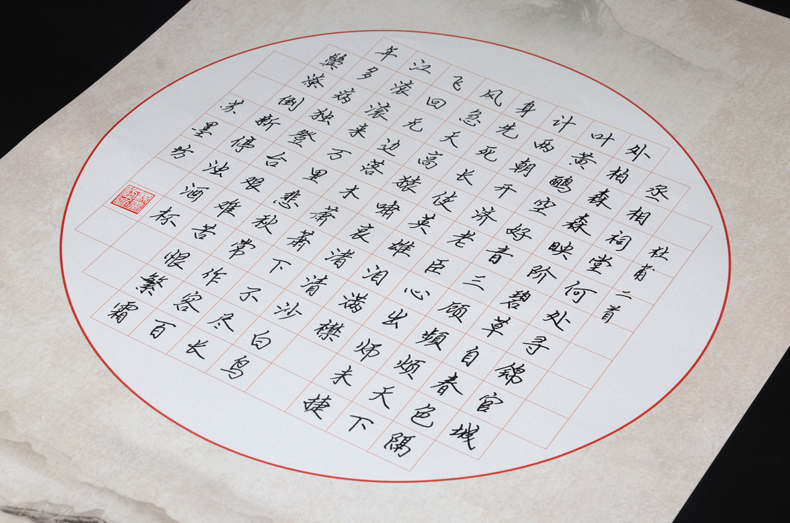 杜甫二首
丞相祠堂何处寻锦官城
外柏森森映阶碧草自春色隔
叶黄鹂空好音三顾频烦天下
计两朝开济老臣心出师未捷
身先死长使英雄泪满襟
风急天高猿啸哀渚清沙白鸟
飞回无边落木萧萧下不尽长
江滚滚来万里悲秋常作客百
年多病独登台艰难苦恨繁霜
鬓潦倒新停浊酒杯
苏墨坊